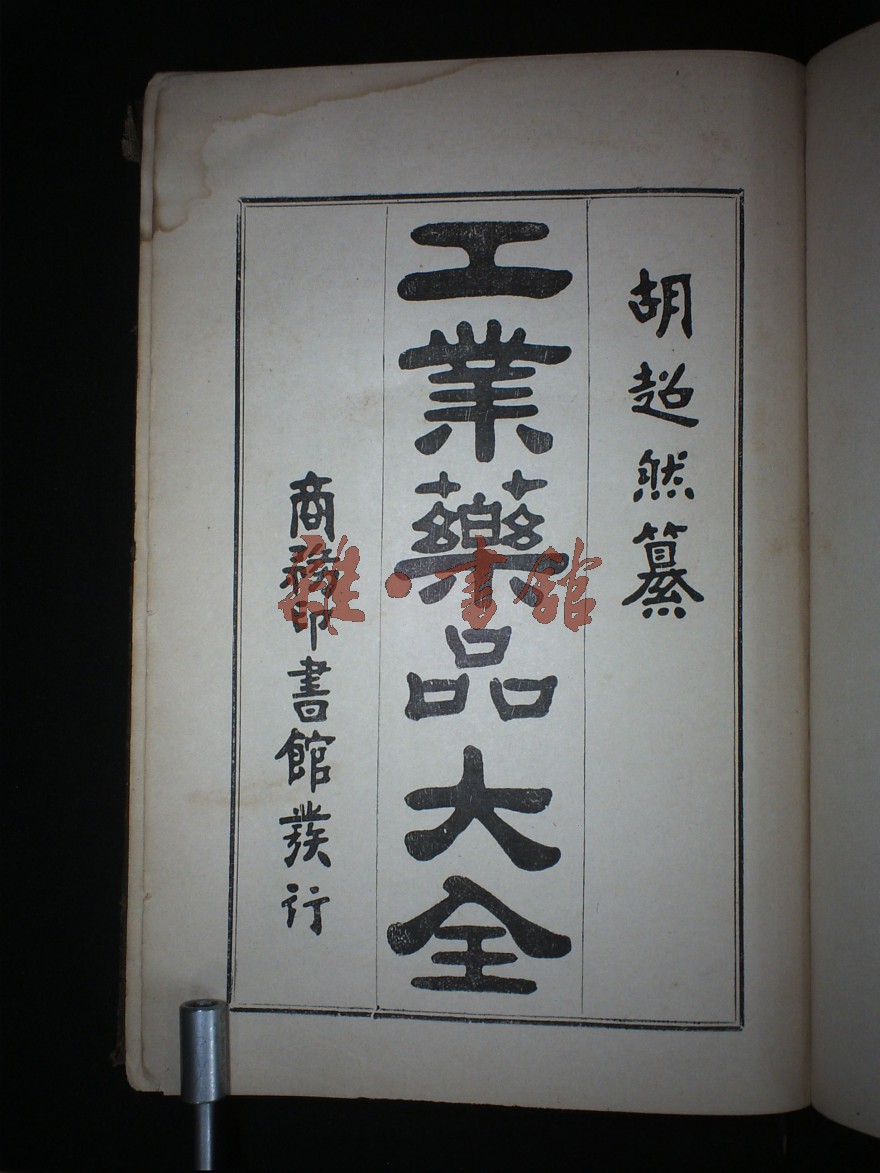 胡超然纂
工業藥品大全
商務印書館發行
雜·書館